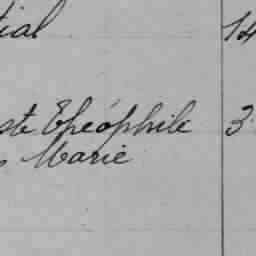 tial 14
ste Théophile 3
Marie